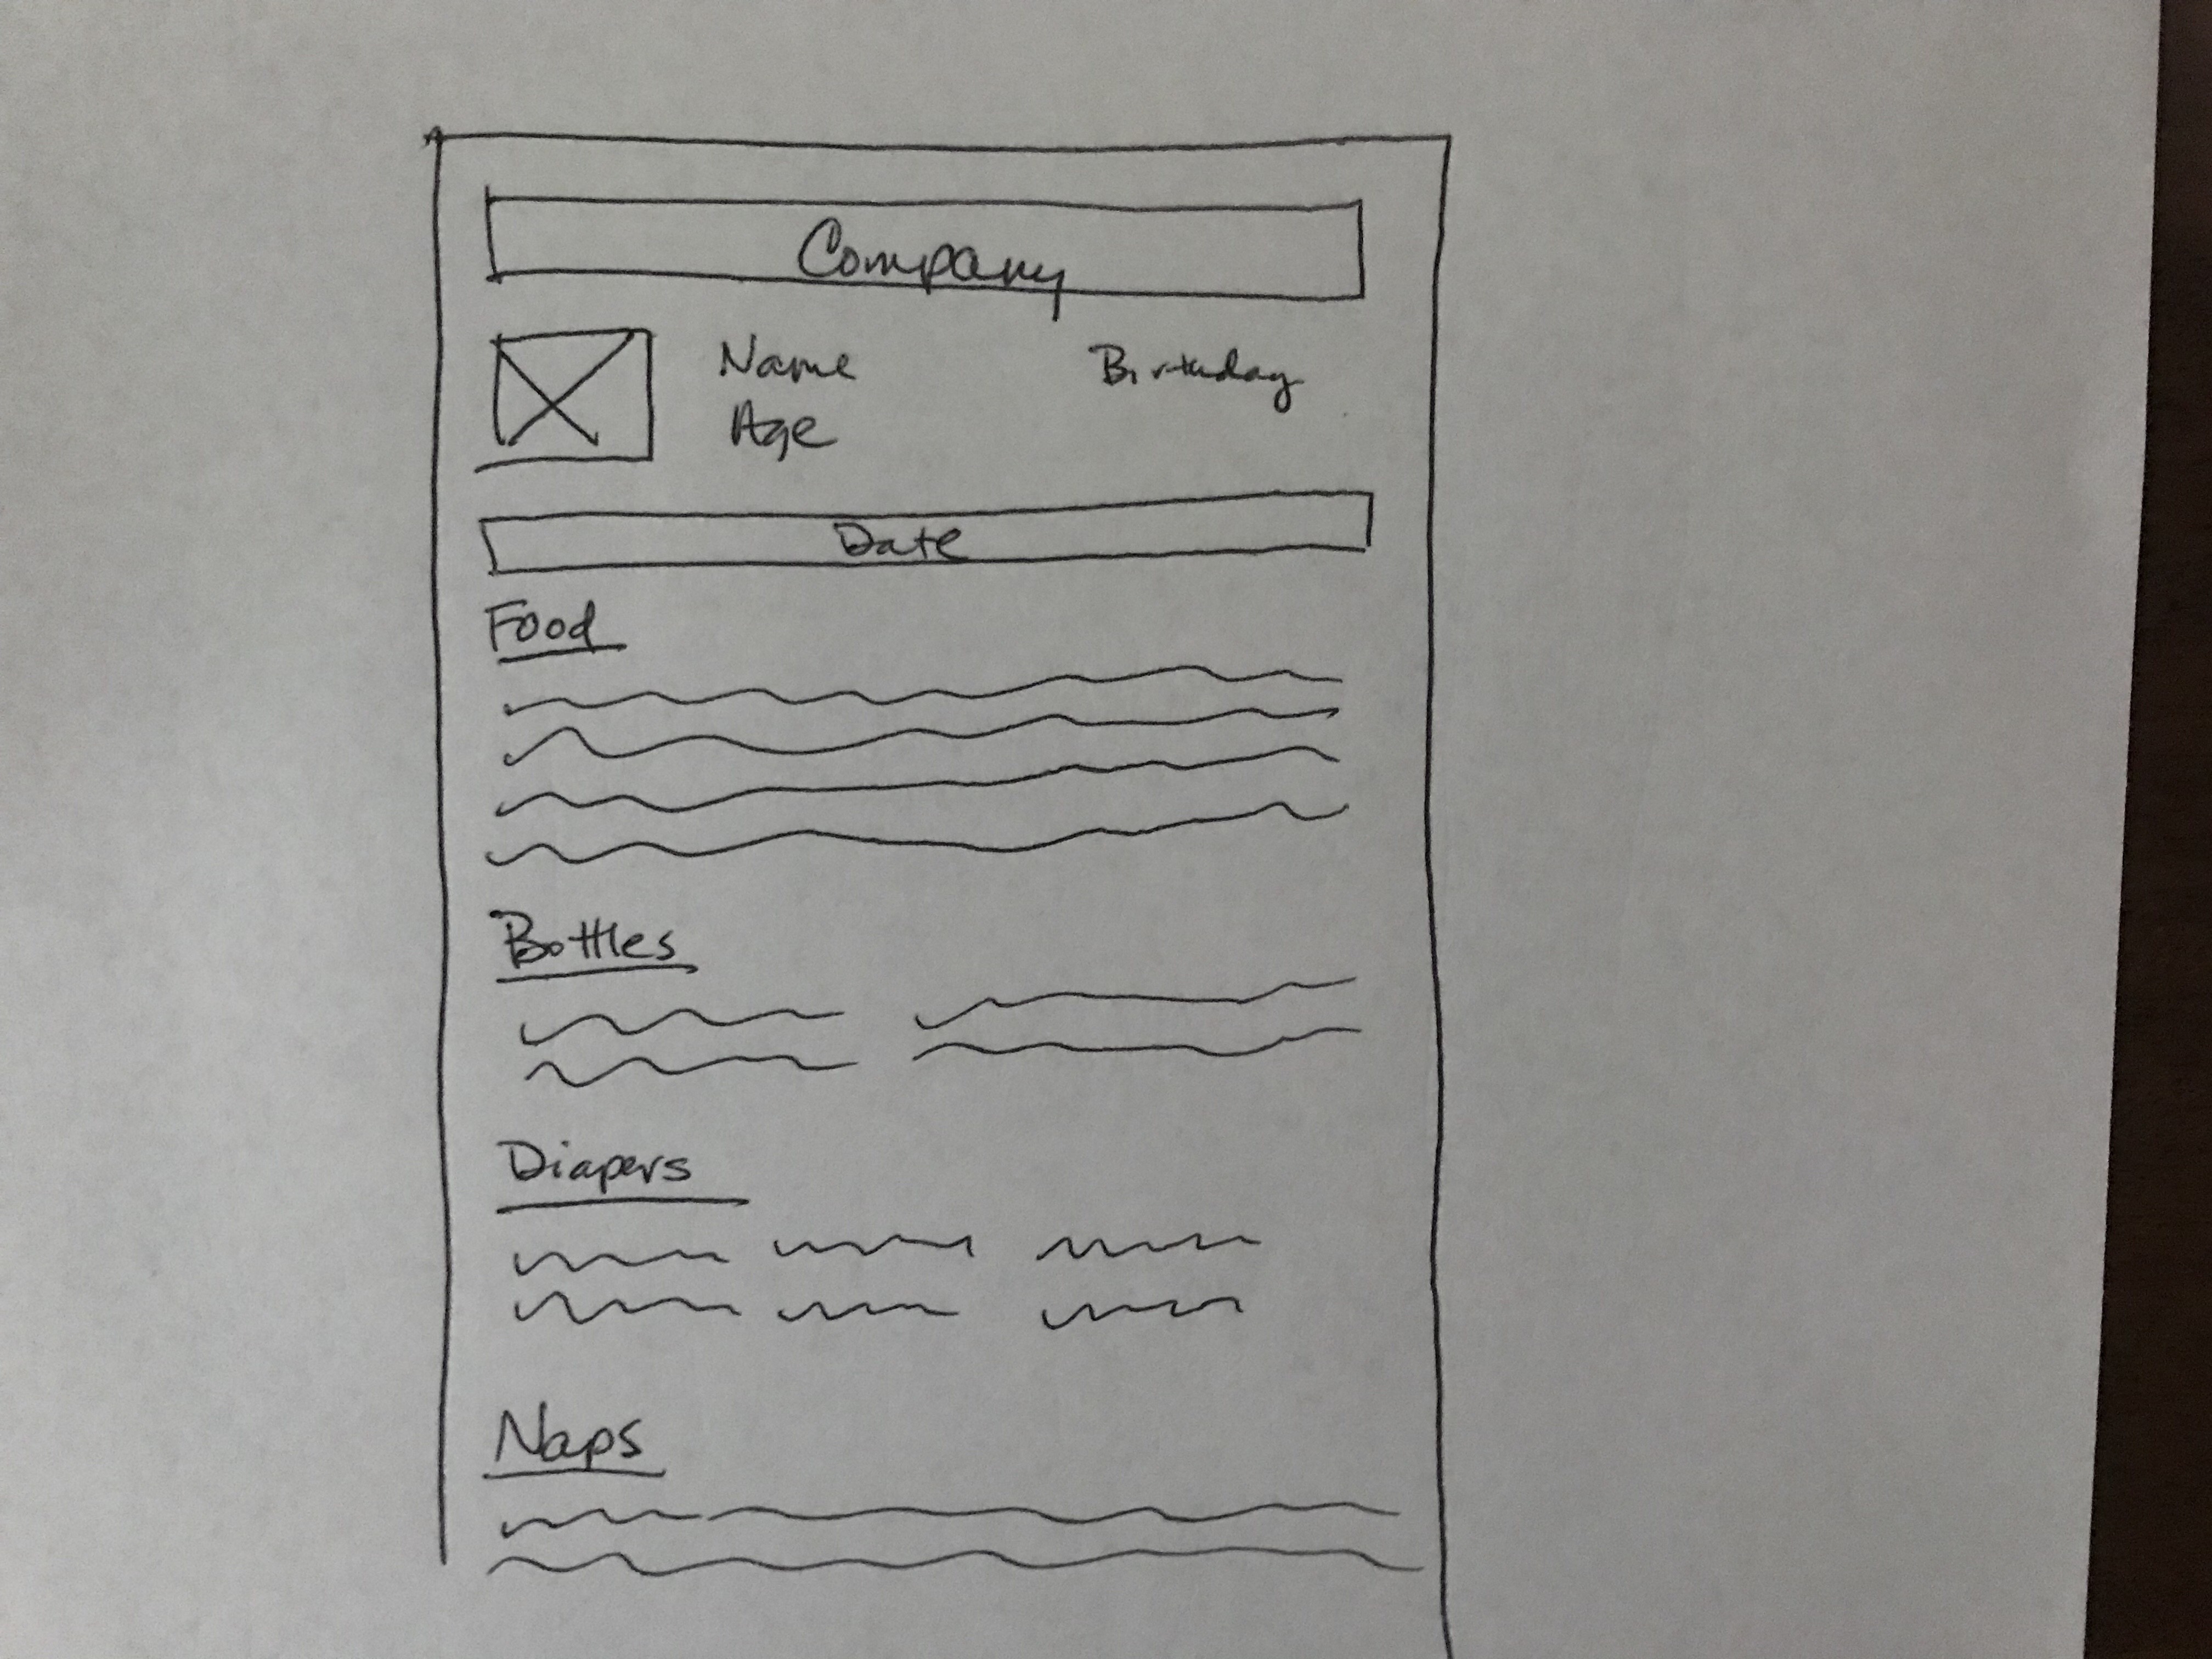 Company
Name Birthday
Age
Date
Food
Bottles
Diapers
Naps